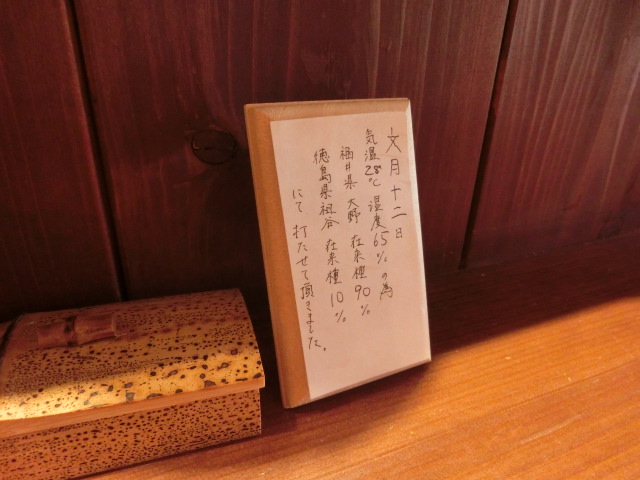 文月十二日
気温28℃ 湿度65%の為
福井県 大野 在来種 90%
徳島県祖谷 在来種 10%
にて 打たせて頂きました。